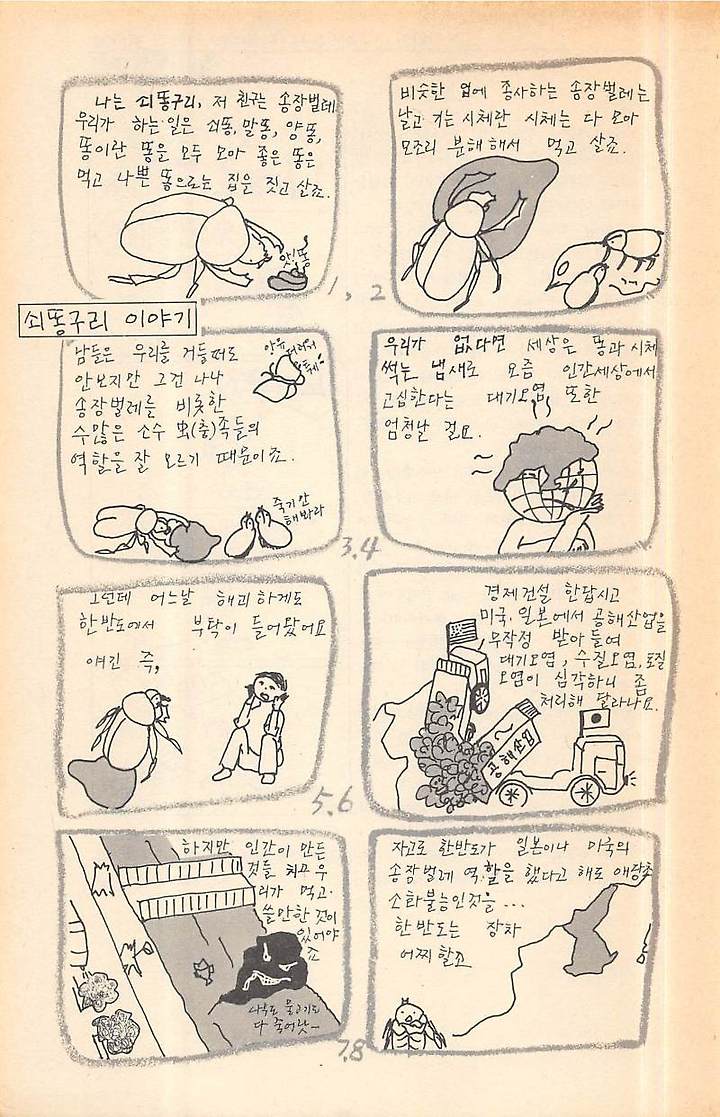 나는 쇠똥구리, 저 친구는 송장벌레
우리가 하는 일은 쇠똥, 말똥, 양똥,
똥이란 똥을 모두 모아 좋은 똥은
먹고 나쁜 똥으로는 집을 짓고 살죠.
앗! 똥
비슷한 업에 종사하는 송장벌레는
날고 기는 시체란 시체는 다 모아
모조리 분해해서 먹고 살죠.
1, 2
쇠똥구리 이야기
남들은 우리를 거들떠도
안보지만 그건 나나
송장벌레를 비롯한
수많은 소수 虫(충)족들의
역할을 잘 모르기 때문이죠.
죽기만
해봐라
우리가 없다면 세상은 똥과 시체
썩는 냄새로 요즘 인간세상에서
고심한다는 대기오염 또한
엄청날 걸요.
3.4
그런데 어느날 해괴하게도
한반도에서 부탁이 들어왔어요
얘긴 즉,
경제건설 한답시고
미국, 일본에서 공해산업을
무작정 받아들여
대기오염, 수질오염, 토질
오염이 심각하니 좀
처리해 달라나요.
공해산업
5.6
하지만 인간이 만든
것들 치고 우
리가 먹고
쓸만한 것이
있어야
죠
나무도 물고기도
다 죽어났-
자고로 한반도가 일본이나 미국의
송장벌레 역할을 했다고 해도 애당초
소화불능인것을 ...
한반도는 장차
어찌할꼬
7.8